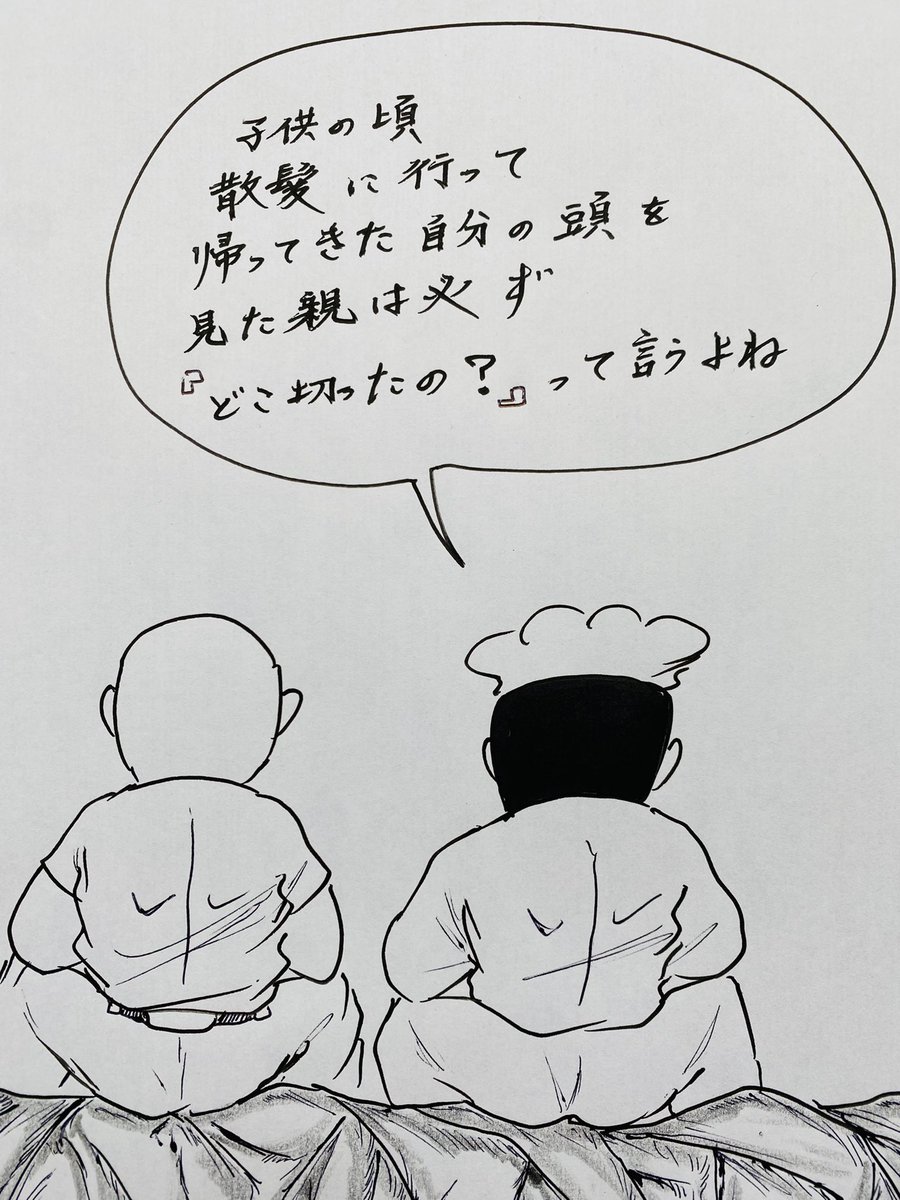 子供の頃
散髪に行って
帰ってきた自分の頭を
見た親は必ず
『どこ切ったの?』って言うよね